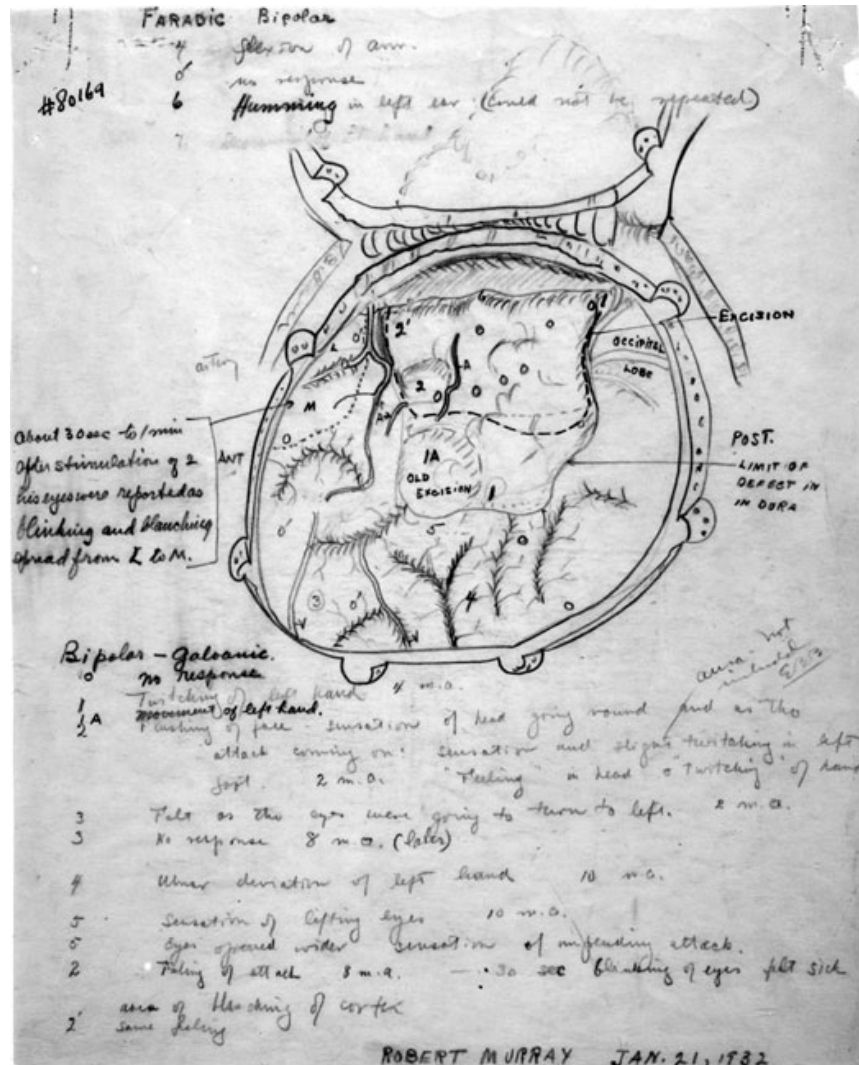 FARADIC Bipolar
4 flexion of arm.
0' no response
#80169
6 Humming in left ear (could not be repeated)
7
EXCISION
OCCIPITAL
LOBE
artery
2'
0'
A
2
M
A2
About 30 sec to 1 min
after stimulation of 2
his eyes were reported as
blinking and blanching
spread from I to M.
ANT
1A
OLD
EXCISION
1
POST.
LIMIT OF
DEFECT IN
IN DURA
5
0'
3
0'
4
Bipolar - Galvanic.
0 no response
1 Twitching of left hand 4 m.a.
1A movement of left hand.
aura - not
included
2 Flushing of face - sensation of head going round and as tho
attack coming on: sensation and slight twitching in left
foot. 2 m.a. "Feeling" in head & "Twitching" of hand
3 Felt as tho eyes were going to turn to left. 2 m.a.
3 No response 8 m.a. (later)
4 Ulnar deviation of left hand 10 m.a.
5 Sensation of lifting eyes 10 m.a.
5 Eyes opened wider sensation of impending attack.
2 Feling of attack 8 m.a. — 30 sec blinking of eyes felt sick
area of blanching of cortex
2' same feling
ROBERT MURRAY JAN. 21, 1932